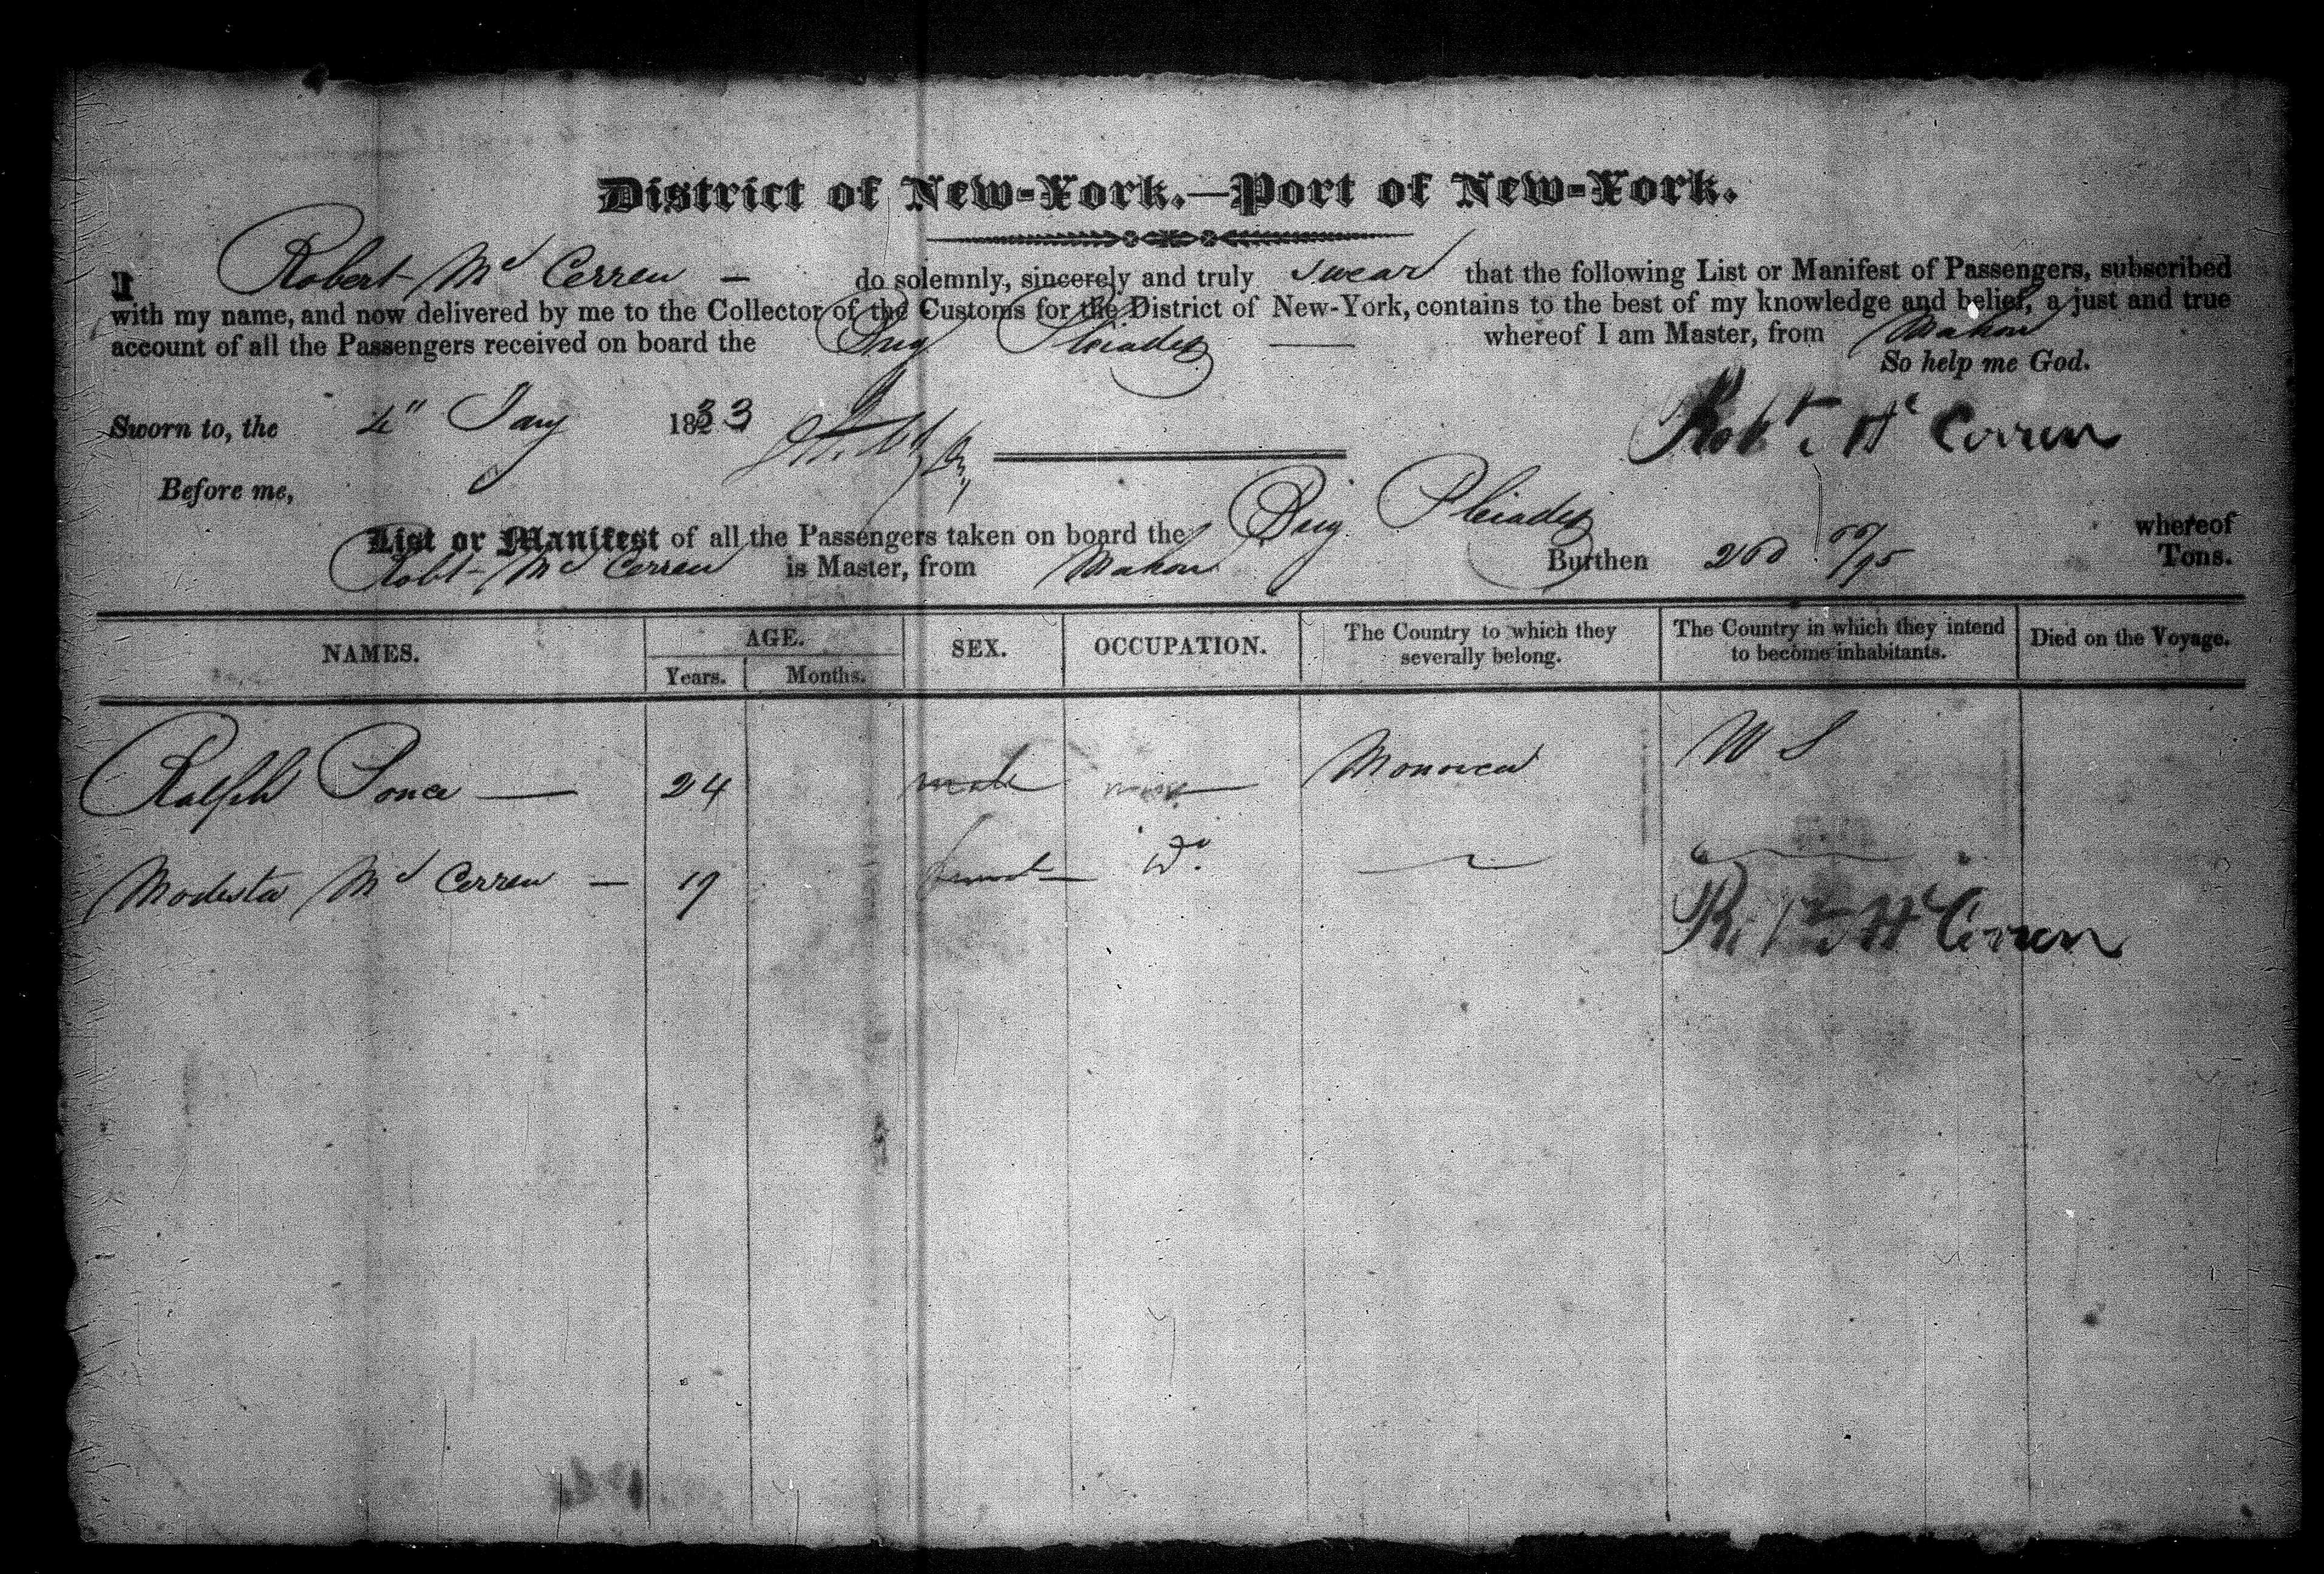 District of New-York.—Port of New-York.
I Robert Mc Cerren — do solemnly, sincerely and truly swear that the following List or Manifest of Passengers, subscribed
with my name, and now delivered by me to the Collector of the Customs for the District of New-York, contains to the best of my knowledge and belief, a just and true
account of all the Passengers received on board the Brig Pleiades — whereof I am Master, from Mahon
So help me God.
Sworn to, the 4" Jany 1833
Robt. Mc Cerren
Before me,
List or Manifest of all the Passengers taken on board the Brig Pleiades whereof
Robt Mc Cerren is Master, from Mahon Burthen 260 /95 Tons.
NAMES. AGE. SEX. OCCUPATION. The Country to which they severally belong. The Country in which they intend to become inhabitants. Died on the Voyage.
Years. Months.
Ralph Ponce — 24 male none — Monorca U S
Modesta Mc Cerren — 19 female — Do.
Robt Mc Cerren